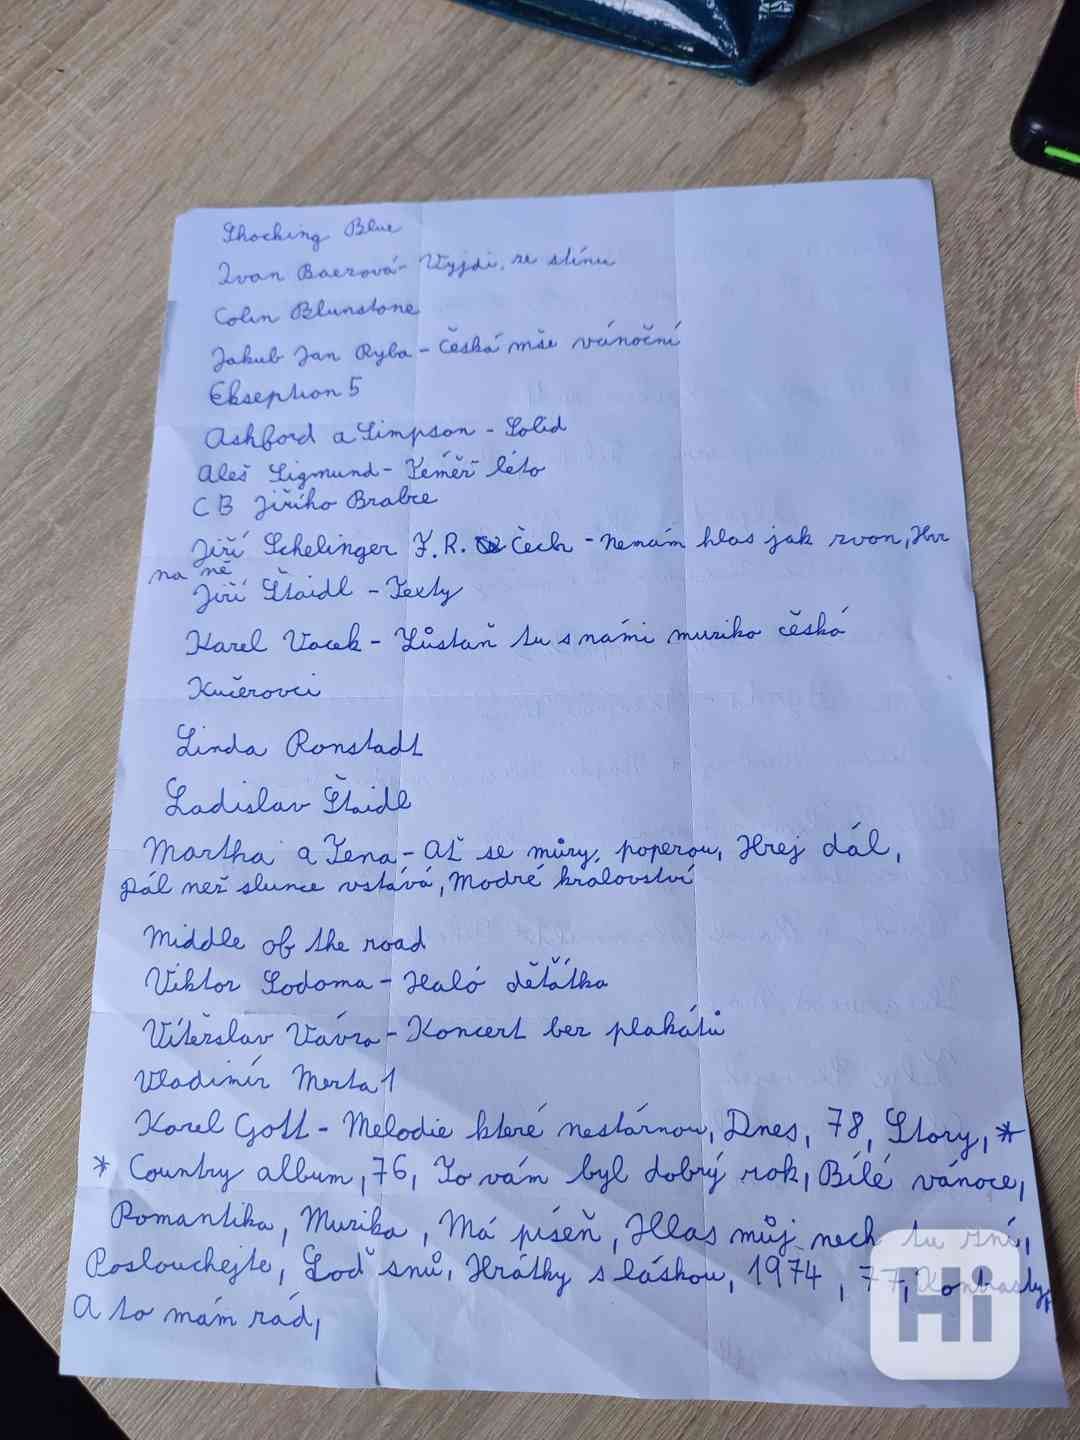 Shocking Blue
Ivan Baerová - Vyjdi, ze stínu
Colin Blunstone
Jakub Jan Ryba - Česká mše vánoční
Ekseption 5
Ashford a Simpson - Solid
Aleš Sigmund - Téměř léto
CB Jiřího Brabce
Jiří Schelinger F.R. Čech - Nemám hlas jak zvon, Hrr
na ně
Jiří Štaidl - Texty
Karel Vacek - Zůstaň tu s námi muziko česká
Kučerovci
Linda Ronstadt
Ladislav Štaidl
Martha a Tena - Ať se můry, poperou, Hrej dál,
Dál než slunce vstává, Modré kralovství
Middle of the road
Viktor Sodoma - Haló děťátka
Vítězslav Vávra - Koncert bez plakátů
Vladimír Merta 1
Karel Gott - Melodie které nestárnou, Dnes, 78, Story, *
* Country album, 76, To vám byl dobrý rok, Bílé vánoce,
Romantika, Muzika, Má píseň, Hlas můj nech tu zní,
Poslouchejte, Loď snů, Hrátky s láskou, 1974, 77, Kontrasty,
A to mám rád,
Hi